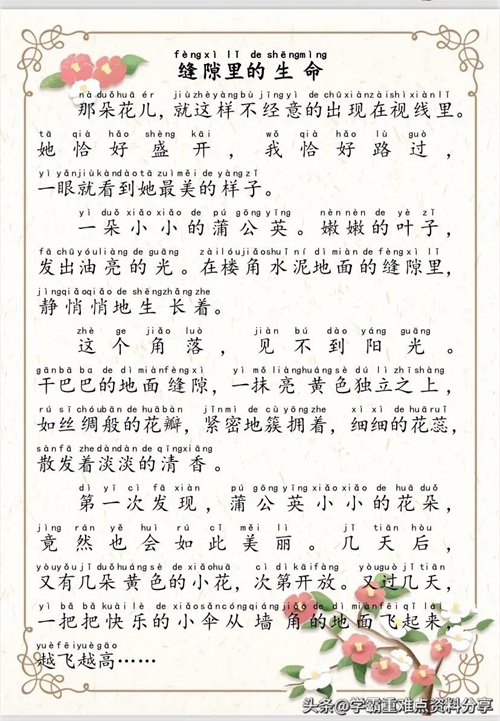 fèngxì lǐ de shēngmìng
缝隙里的生命
nà duǒhuā ér jiùzhèyàngbù jīngyì de chūxiànzàishìxiànlǐ
那朵花儿,就这样不经意的出现在视线里。
tā qià hǎo shèng kāi wǒ qià hǎo lù guò
她恰好盛开,我恰好路过,
yì yǎnjiùkàndàotā zuìměi de yàngzǐ
一眼就看到她最美的样子。
yì duǒ xiǎoxiǎo de pú gōngyīng nènnèn de yè zǐ
一朵小小的蒲公英。嫩嫩的叶子,
fā chūyóuliàng de guāng zàilóujiǎoshuǐ ní dì miàn de fèngxì lǐ
发出油亮的光。在楼角水泥地面的缝隙里,
jìngqiǎoqiǎo de shēngzhǎngzhe
静悄悄地生长着。
zhè ge jiǎo luò jiàn bú dào yáng guāng
这个角落,见不到阳光。
gānbā ba de dì miànfèngxì yì mǒ liànghuángsè dú lì zhīshàng
干巴巴的地面缝隙,一抹亮黄色独立之上,
rú sī chóubān de huābàn jǐnmì de cù yōngzhe xì xì de huāruǐ
如丝绸般的花瓣,紧密地簇拥着,细细的花蕊,
sànfā zhedàndàn de qīngxiāng
散发着淡淡的清香。
dì yī cì fā xiàn pú gōngyīngxiǎoxiǎo de huā duǒ
第一次发现,蒲公英小小的花朵,
jìng rán yě huì rú cǐ měi lì jǐ tiān hòu
竟然也会如此美丽。几天后,
yòuyǒujǐ duǒhuángsè de xiǎohuā cì dì kāifàng yòuguò jǐ tiān
又有几朵黄色的小花,次第开放。又过几天,
yì bǎ bǎ kuàilè de xiǎosǎncóngqiángjiǎo de dì miànfēiqǐ lái
一把把快乐的小伞从墙角的地面飞起来,
yuèfēiyuègāo
越飞越高……
头条@学霸重难点资料分享